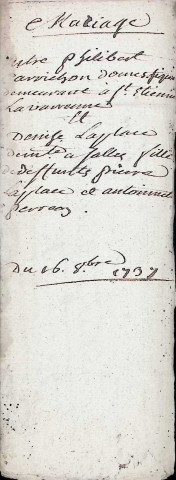 Mariage
entre philibert
domestique
demeurant a st Etienne
la varenne
Et
Denise Laplace
demte a salles fille
de deffunts pierre
Laplace et antoinette
Du 16. 8bre 1737